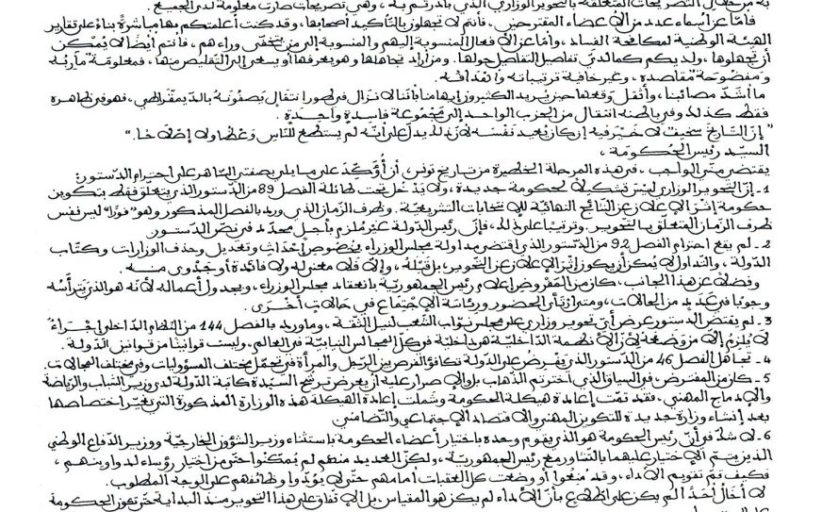 به من خلال التصريحات المتعلقة بالتحوير الوزاري الذي بادرتم به ، وهي تصريحات صارت معلومة لدى الجميع.
فأمّا عن أسماء عدد من الأعضاء المقترحين ، فأنتم لا تجهلون بالتأكيد أصحابها ، وقد كنت أعلمتكم بها مباشرة بناء على تقارير
الهيئة الوطنية لمكافحة الفساد ، وأمّا عن الأفعال المنسوبة إليهم والمنسوبة إلى من يتخفّى وراءهم ، فأنتم أيضا لا يُمْكن
أن تجهلوها ، ولديكم كما لديّ تفاصيل التفاصيل حولها. ومن أراد تجاهلها وهو يعرفها أو يسعى إلى التقليص منها ، فمعلومة مآربه
ومفضوحة مقاصده ، وغير خافية ترتيباته وأهدافه.
ما أشدّ مصائبنا ، وأثقل وقعها حين يريد الكثيرون إيهامنا بأننا لا نزال في طور انتقال يَصِفُونَهُ بالديمقراطي ، فهو في ظاهره
فقط كذلك وفي باطنه انتقال من الحزب الواحد إلى مَجْمُوعة فاسِدة واحِدة.
"إنّ التاريخ سخيف لا خيْر فيه إن كان يُعيد نَفْسَه لأنه لا يدلّ على أنّه لم يستطع للنّاس وَعْظا ولا إصْلاحا."
السيّد رئيس الحكومة ،
يقتضي منّي الواجب ، في هذه المرحلة الخطيرة من تاريخ تونس ، أن أُؤكّدَ على ما يلي بصفتي السّاهر على احترام الدّستور:
1 - إنّ التحوير الوزاري ليْسَ تشكيلا لحكومة جديدة ، ولا يَدْخل تحت طائلة الفصل 89 من الدّستور الذي يتعلّق فقط بتكوين
حكومة إثْرَ الإعلان عن النّتائج النّهائيّة للانتخابات التشريعيّة. وظرف الزّمان الذي ورد بالفصل المذكور وهو "فورًا" ليس نفس
ظرف الزّمان المتعلّق بالتحوير. وترتيبا على ذلك ، فإنّ رئيس الدّولة غير مُلزم بأجل محدّد في نصّ الدّستور
2 - لم يقع احترام الفصل 92 من الدستور الذي اقتضى مداولة مجلس الوزراء بخصوص إحْداث وتعديل وحذف الوزارات وكتّاب
الدّولة ، والتداول لا يُمكن أن يكون إثْرَ الإعلان عن التّحوير، بل قَبْلَهُ ، وإلاّ فلا معنى له ولا فائدة أو جَدْوى منه.
وفضلا عن هذا الجانب ، كان من المَفْروض إعلام رئيس الجمهوريّة بانعقاد مجلس الوزراء ، وبجدول أعماله لأنّه هو الذي يَتَرأّسُه
وجوبا في عديد من الحالات ، ومتى ارتأى الحضور ورئاسة الإجتماع في حالات أخرى.
3 - لم يقتض الدستور عرض أيّ تحوير وزاري على مجلس نوّاب الشّعب لنيل الثقة ، وما ورد بالفصل 144 من النظام الدّاخلي إجْراءٌ
لا يلزم إلا من وَضَعَهُ لأنّ الأنظمة الدّاخليّة هي داخليّة في كلّ المجالس النيابيّة في العالم ، وليست قوانينا من قوانين الدّولة.
4 - تجاهل الفصل 46 من الدّستور الذي يفرض على الدّولة تكافؤ الفرص بين الرّجل والمرأة في تحمّل مختلف المسؤوليات وفي مختلف المجالات.
5 - كان من المفترض في السياق الذي اخترتم الذّهاب إليه والإصرار عليه أن يعرض ترشّح السيّدة كاتبة الدّولة لدى وزير الشباب والرّياضة
والإدماج المهني ، فقد تمّت إعادة هيكلة الحكومة وشملت إعادة الهيكلة هذه الوزارة المذكورة التي تغيّر اختصاصها
بعد إنشاء وزارة جديدة للتكوين المهني والاقتصاد الاجتماعي والتّضامني
6 - لا شكّ في أنّ رئيس الحكومة هو الذي يقوم وحده باختيار أعضاء الحكومة باستثناء وزير الشؤون الخارجيّة ووزير الدّفاع الوطني
الذين يتمّ الاختيار عليهما بالتّشاور مع رئيس الجمهوريّة ، ولكنّ العديد منهم لم يُمكّنوا حتّى من اختيار رؤساء لدواوينهم ،
فكيف تمّ تقويم الأداء ، وقد مُنِعُوا أو وضعت كلّ العقبات أمامهم حتّى لا يؤدّوا وظائفهم على الوجه المطلوب.
لا أخال أحدًا لم يكن على اطّلاع بأنّ الأداء لم يكن هو المقياس بل الإتفاق على هذا التحوير منذ البداية حتّى تحوز الحكومة